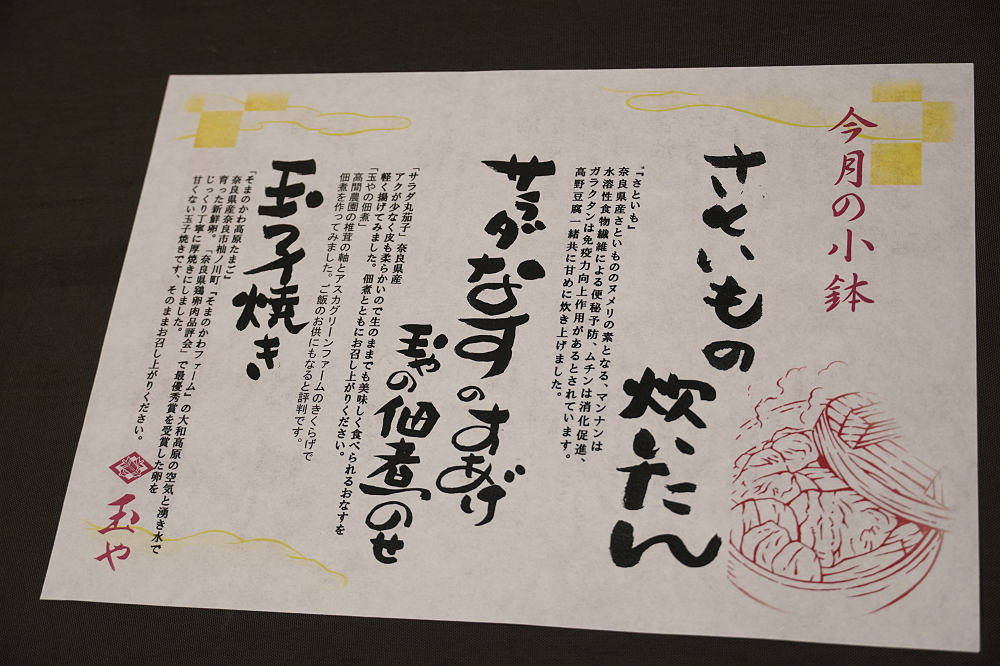 今月の小鉢
さといもの
炊いたん
「さといも」
奈良県産さといものヌメリの素となる、マンナンは
水溶性食物繊維による便秘予防、ムチンは消化促進、
ガラクタンは免疫力向上作用があるとされています。
高野豆腐一緒共に甘めに炊き上げました。
サラダなすのすあげ
玉やの佃煮のせ
「サラダ丸茄子」奈良県産
アクが少なく皮も柔らかいので生のままでも美味しく食べられるおなすを
軽く揚げてみました。佃煮とともにお召し上がりください。
「玉やの佃煮」
高間農園の椎茸の軸とアスカグリーンファームのきくらげで
佃煮を作ってみました。ご飯のお供にもなると評判です。
玉子焼き
「そまのかわ高原たまご」
奈良県産奈良市杣ノ川町『そまのかわファーム』の大和高原の空気と湧き水で
育った新鮮卵。「奈良県鶏卵肉品評会」で最優秀賞を受賞した卵を
じっくり丁寧に厚焼きにしました。
甘くない玉子焼きです、そのままお召し上がりください。
玉や